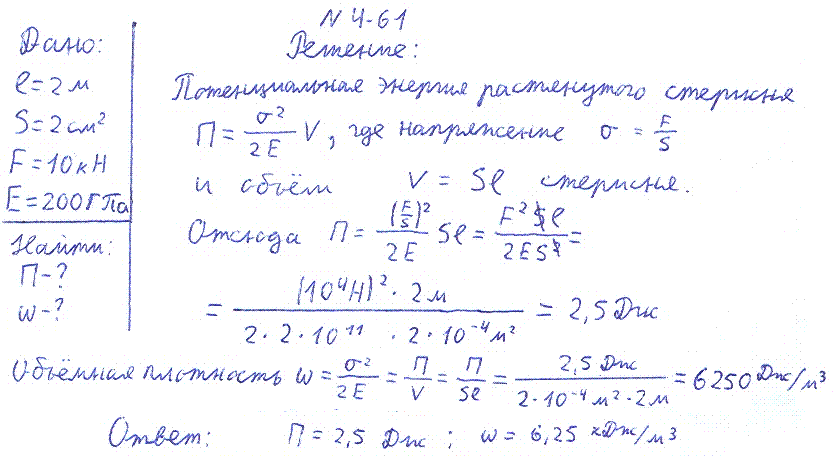 N 4-61
Дано:
l = 2 м
S = 2 см²
F = 10 кН
E = 200 ГПа
Найти:
П - ?
w - ?
Решение:
Потенциальная энергия растянутого стержня
П = σ²/2E V, где напряжение σ = F/S
и объём V = Sl стержня.
Отсюда П = (F/S)²/2E Sl = F² S l/2ES² =
= (10⁴Н)² · 2 м/2 · 2 · 10¹¹ · 2 · 10⁻⁴ м² = 2,5 Дж
Объёмная плотность w = σ²/2E = П/V = П/Sl = 2,5 Дж/2·10⁻⁴ м² · 2 м = 6250 Дж/м³
Ответ: П = 2,5 Дж ; w = 6,25 кДж/м³